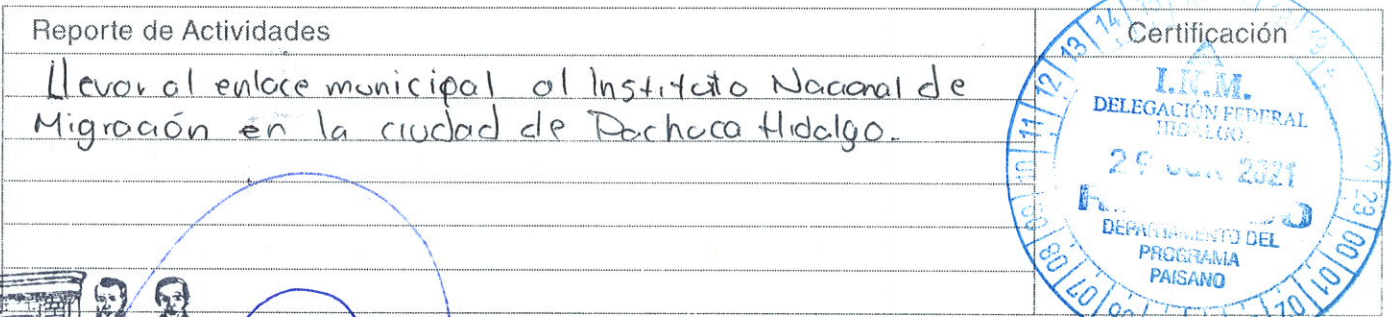 Reporte de Actividades
Certificación
Llevar al enlace municipal al Instituto Nacional de
Migración en la ciudad de Pachuca Hidalgo.
I.N.M.
DELEGACIÓN FEDERAL
HIDALGO.
29 2021
DEPARTAMENTO DEL
PROGRAMA
PAISANO
07 08 09 10 11 12 13 14
23 00 01 02